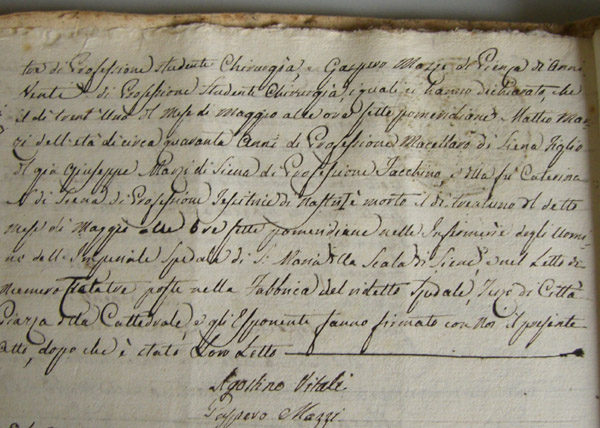 tor di Professione studente Chirurgia, e Gaspero Mazzi di Pienza di Anni
Venti di Professione Studente Chirurgia, i quali ci hanno dichiarato, che
il dì trent'uno del Mese di Maggio alle ore sette pomeridiane Matteo Maz-
zi dell'età di circa quaranta Anni di Professione Macellaro di Siena figlio
del già Giuseppe Mazzi di Siena di Professione Facchino, e della fù Caterina
di Siena di Professione Tessitrice di Nastri è morto il dì trentuno del detto
Mese di Maggio alle Ore sette pomeridiane nelle Infermerie degli Uomi-
ni dell'Imperiale Spedale di S. Maria della Scala di Siena, e nel Letto di
numero poste nella Fabbrica del ridetto Spedale, Terzo di Città
Piazza della Cattedrale, e gli Esponenti hanno firmato con Noi il presente
Atto, dopo che è stato Loro Letto
Agostino Vitali
Gaspero Mazzi